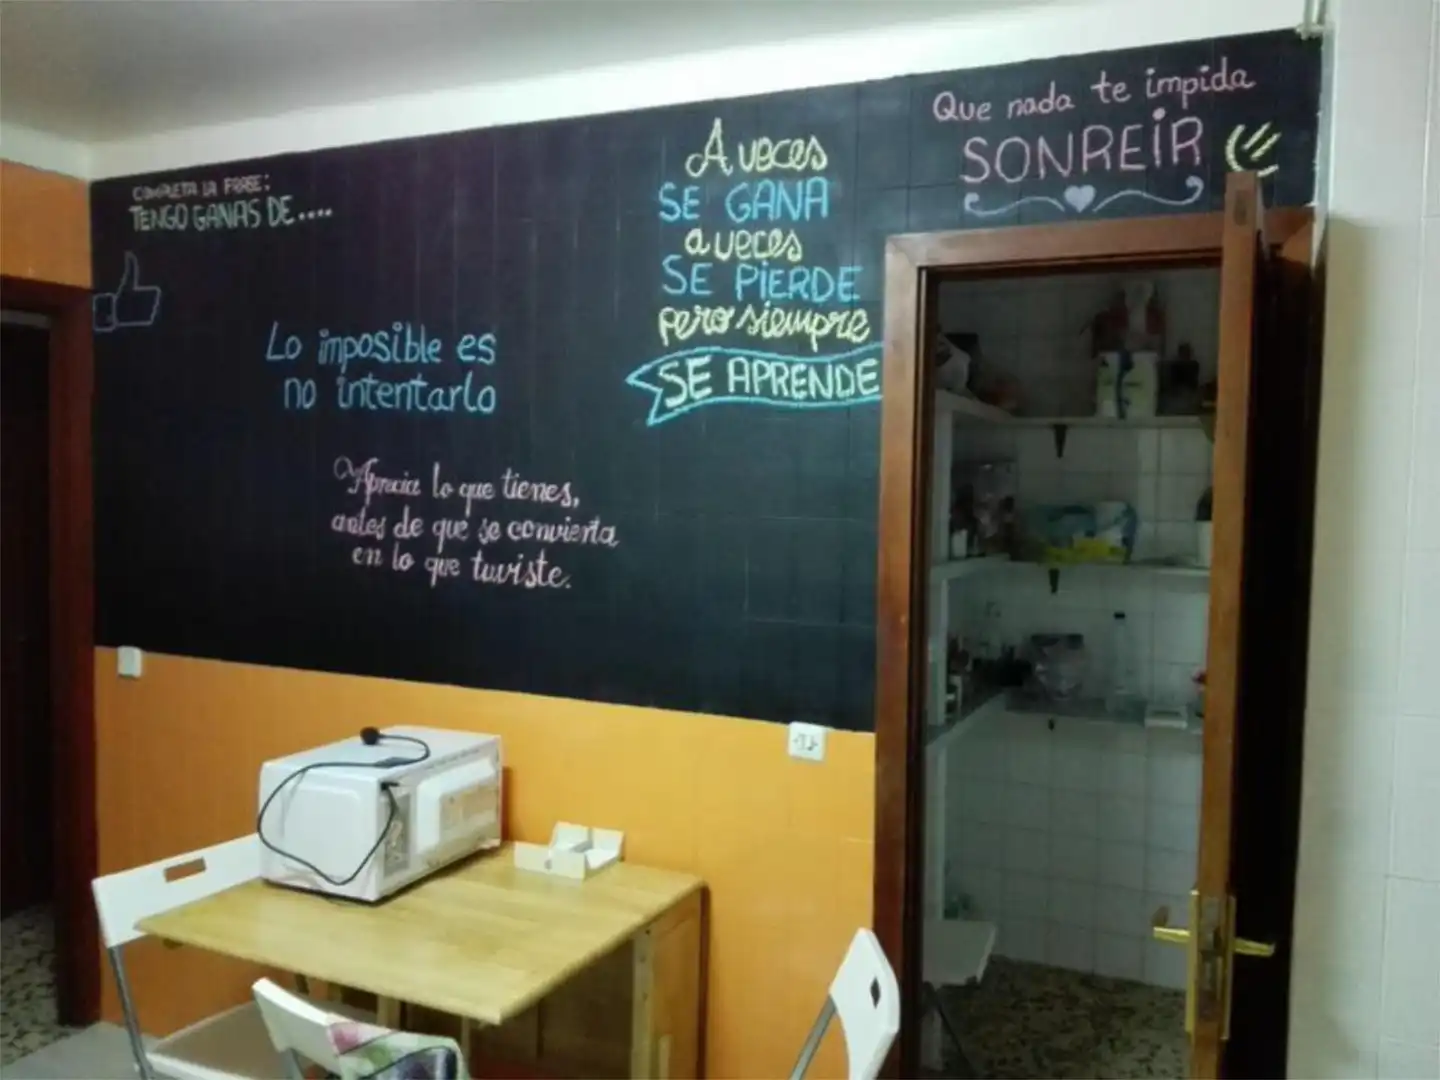 COMPLETA LA FRASE:
TENGO GANAS DE....
Lo imposible es
no intentarlo
Aprecia lo que tienes,
antes de que se convierta
en lo que tuviste.
A veces
SE GANA
a veces
SE PIERDE
pero siempre
SE APRENDE
Que nada te impida
SONREIR